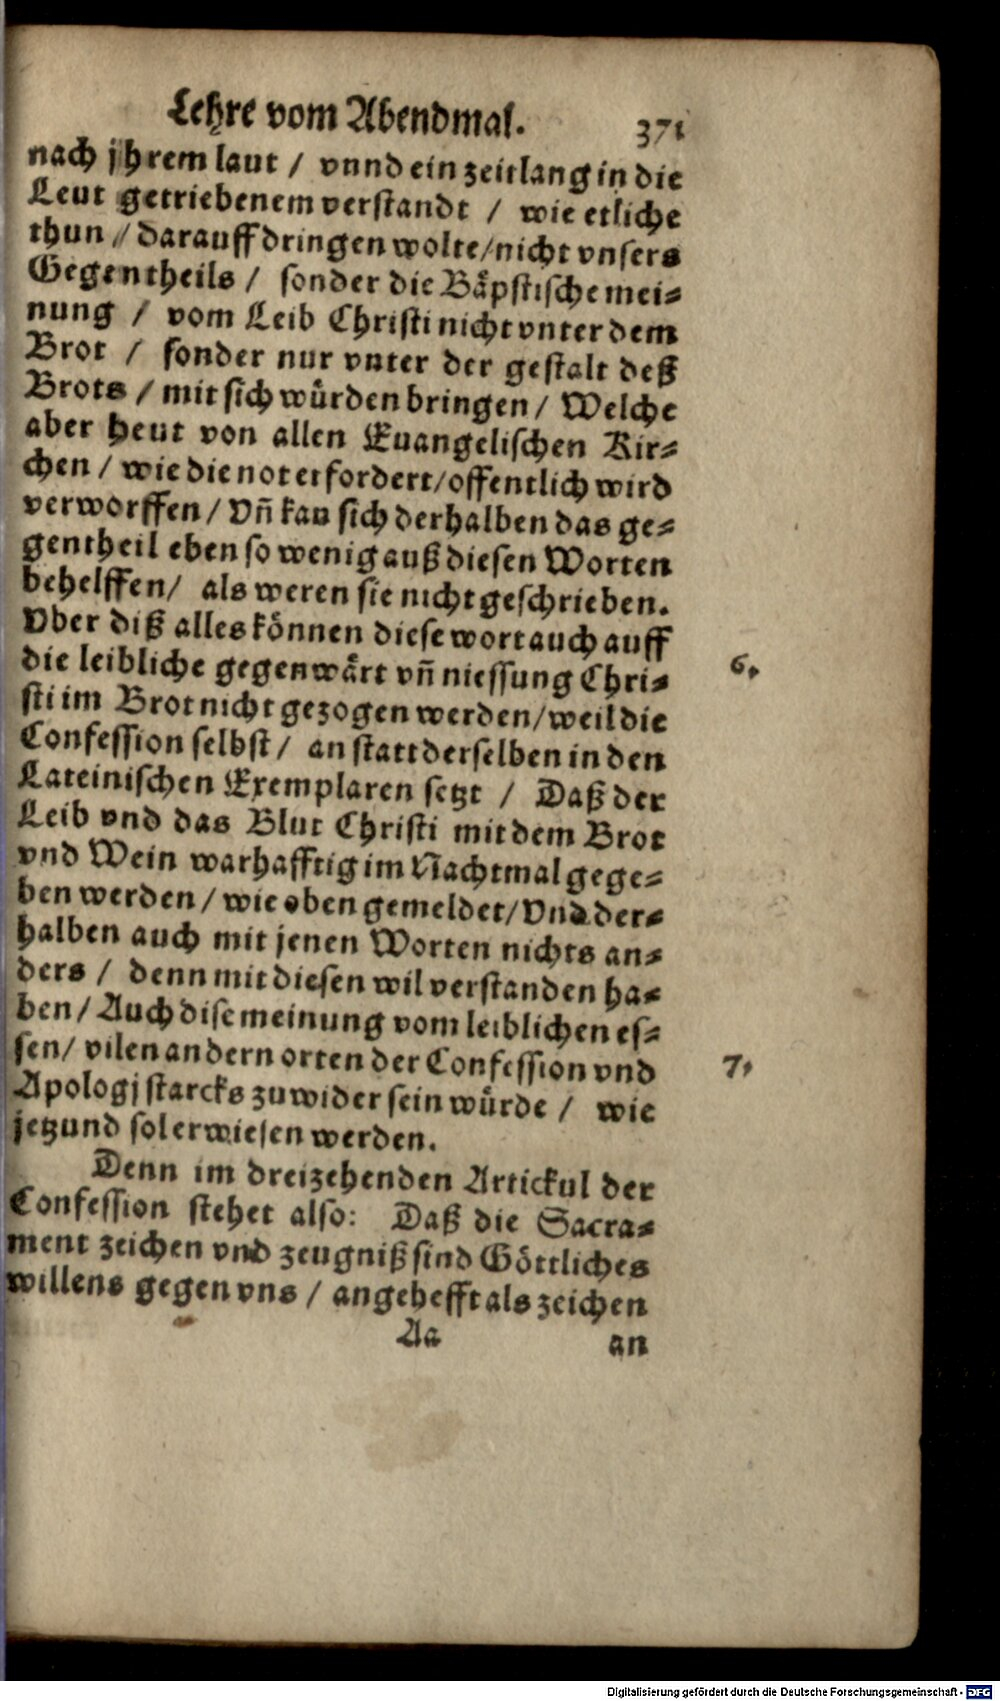 Lehre vom Abendmal. 371
nach jhrem laut / vnnd ein zeitlang in die
Leut getriebenem verstandt / wie etliche
thun / darauff dringen wolte / nicht vnsers
Gegentheils / sonder die Bäpstische mei⸗
nung / vom Leib Christi nicht vnter dem
Brot / sonder nur vnter der gestalt deß
Brots / mit sich würden bringen / Welche
aber heut von allen Euangelischen Kir⸗
chen / wie die not erfordert / offentlich wird
verworffen / Vñ kan sich derhalben das ge⸗
gentheil eben so wenig auß diesen Worten
behelffen / als weren sie nicht geschrieben.
Vber diß alles können diese wort auch auff
die leibliche gegenwärt vñ niessung Chri⸗ 6.
sti im Brot nicht gezogen werden / weil die
Confession selbst / an statt derselben in den
Lateinischen Exemplaren setzt / Daß der
Leib vnd das Blut Christi mit dem Brot
vnd Wein warhafftig im Nachtmal gege⸗
ben werden / wie oben gemeldet / Vnd der⸗
halben auch mit jenen Worten nichts an⸗
ders / denn mit diesen wil verstanden ha⸗
ben / Auch dise meinung vom leiblichen es⸗
sen / vilen andern orten der Confession vnd 7.
Apologj starcks zuwider sein würde / wie
jetzund sol erwiesen werden.
Denn im dreizehenden Artickul der
Confession stehet also: Daß die Sacra⸗
ment zeichen vnd zeugniß sind Göttliches
willens gegen vns / angehefft als zeichen
Aa an
Digitalisierung gefördert durch die Deutsche Forschungsgemeinschaft - DFG